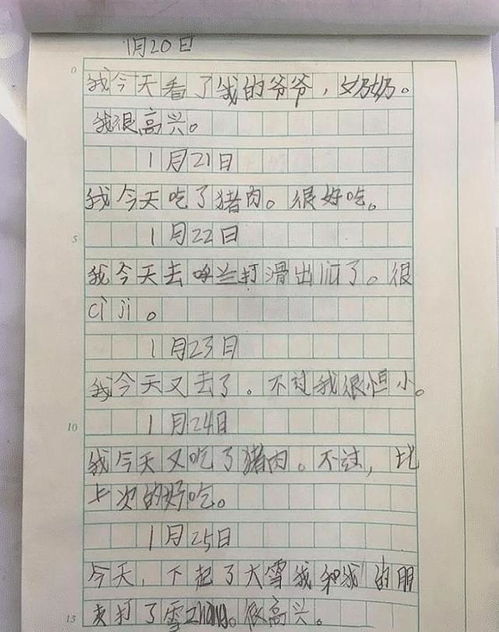 1月20日
0
我今天看了我的爷爷，奶奶。
我很高兴。
1月21日
我今天吃了猪肉。很好吃。
5
1月22日
我今天去呼兰打滑出了。很
cì jī。
1月23日
我今天又去了。不过我很恒小。
10
1月24日
我今天又吃了猪肉。不过，比
上次的好吃。
1月25日
今天，下起了大雪我和我的朋
友打了雪zhang。很高兴。
15